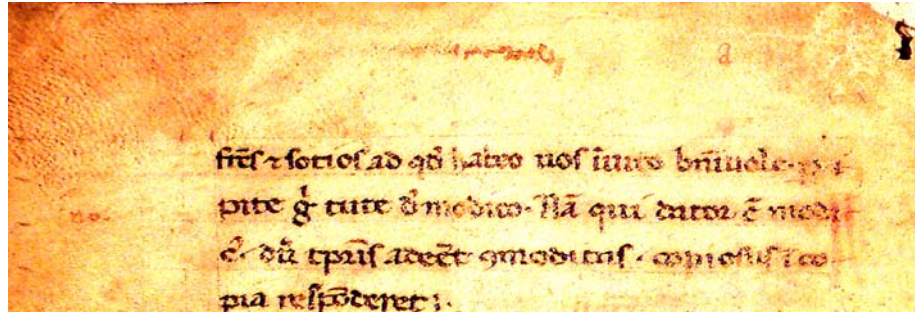 a
fr̄es ⁊ socios ad qđ habeo uos īuito bn̄iuole.
pite g̊ tute đ modico. Nā qui dator ē modi
c̉. dū tp̄ris adeēt ꝯmoditas. copiosus ī co
pia respōderet;.